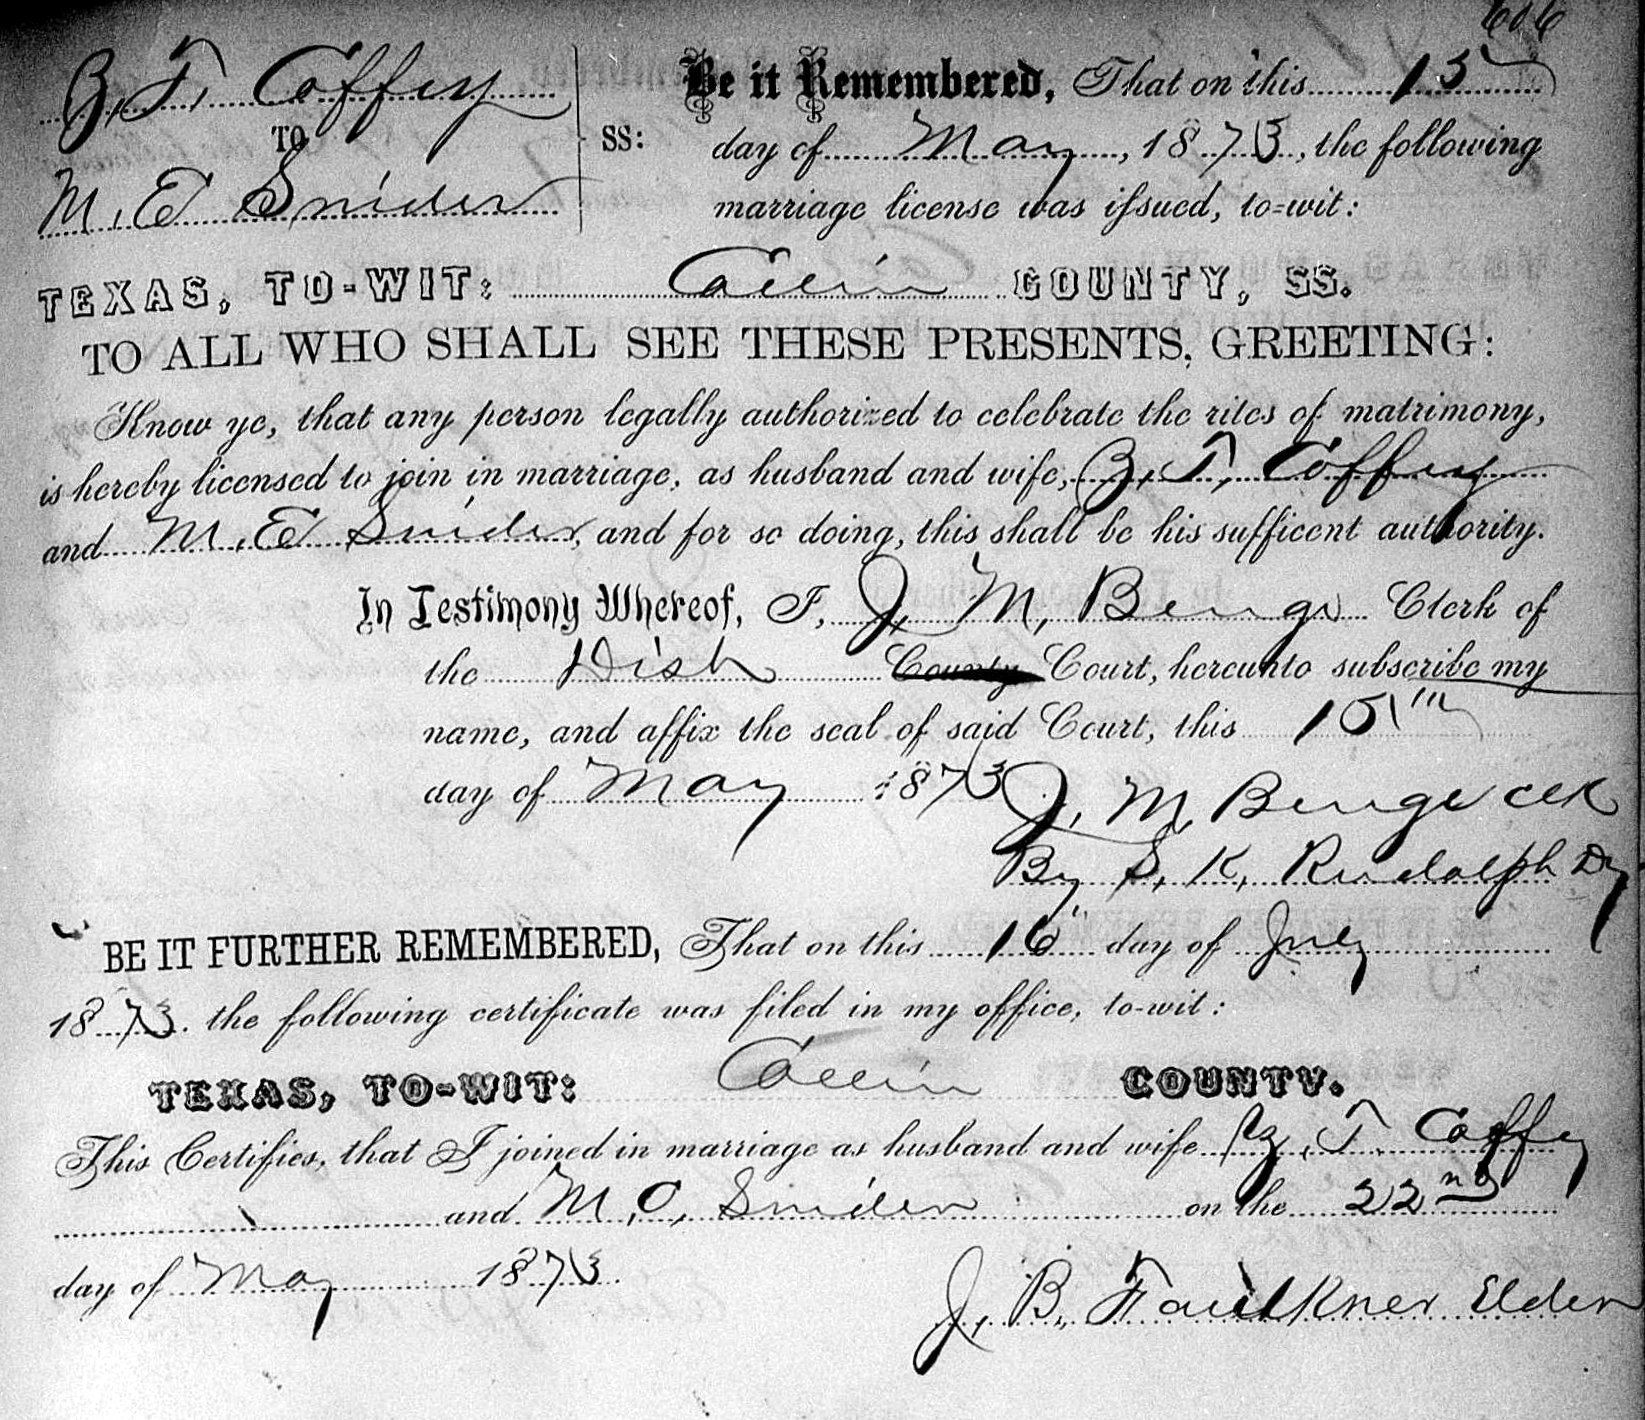 606
Z. T. Coffey
TO
M. E Snider
SS:
Be it Remembered, That on this 15
day of May, 1873, the following
marriage license was issued, to-wit:
TEXAS, TO-WIT: Collin COUNTY, SS.
TO ALL WHO SHALL SEE THESE PRESENTS, GREETING:
Know ye, that any person legally authorized to celebrate the rites of matrimony,
is hereby licensed to join in marriage, as husband and wife, Z. T. Coffey
and M. E Snider, and for so doing, this shall be his sufficent authority.
In Testimony Whereof, I, J. M. Benge Clerk of
the Dist County Court, hereunto subscribe my
name, and affix the seal of said Court, this 15th
day of May 1873
J. M. Benge Clk
By S. K. Rudolph Dy
BE IT FURTHER REMEMBERED, That on this 16" day of July
1873. the following certificate was filed in my office, to-wit:
TEXAS, TO-WIT: Collin COUNTY.
This Certifies, that I joined in marriage as husband and wife Z. T. Coffey
and M. E. Snider on the 22nd
day of May 1873.
J. B. Faulkner Elder